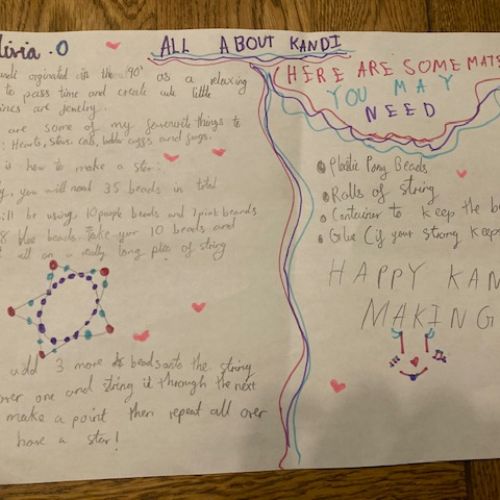 livia . O
ALL ABOUT KANDI
orginated in the 90' as a relaxing
to pass time and create cute little
ines are jewelry.
are some of my favourite things to
: Hearts, stars, cats, and frogs.
is how to make a star:
y, you will need 35 beads in total
ill be using 10 purple beads and 7 pink beands
8 blue beads. Take your 10 beads and
all on a really long pies of string
add 3 more beads onto the string
over one and string it through the next
make a point then repeat all over
have a star!
HERE ARE SOME MATE
YOU MAY
NEED
Plastic Pony Beads
Rolls of string
Container to keep the be
Glue (if your string keeps
HAPPY KAN
MAKING